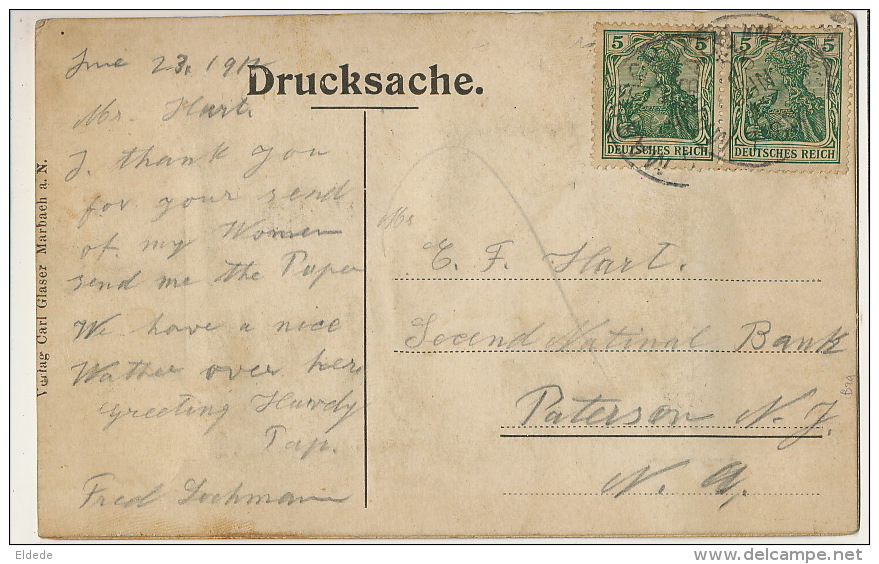 June 23, 191
Drucksache.
Mr. Hart.
I thank you
for your send
of my Women
send me the Paper
We have a nice
Wather over here
Greeting Hurdy
Tap.
Fred Lochmann
Verlag Carl Glaser Marbach a. N.
5 5
DEUTSCHES REICH DEUTSCHES REICH
Mr
C. F. Hart.
Second Natinal Bank
Paterson N. J.
N. A.
Eldede
www.delcampe.net